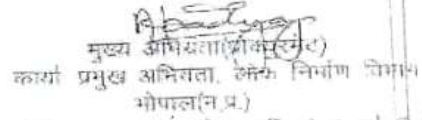 मुख्य अभियंता(प्रोक्योरमेंट)
कार्या प्रमुख अभियंता, लोक निर्माण विभाग
भोपाल(म.प्र.)